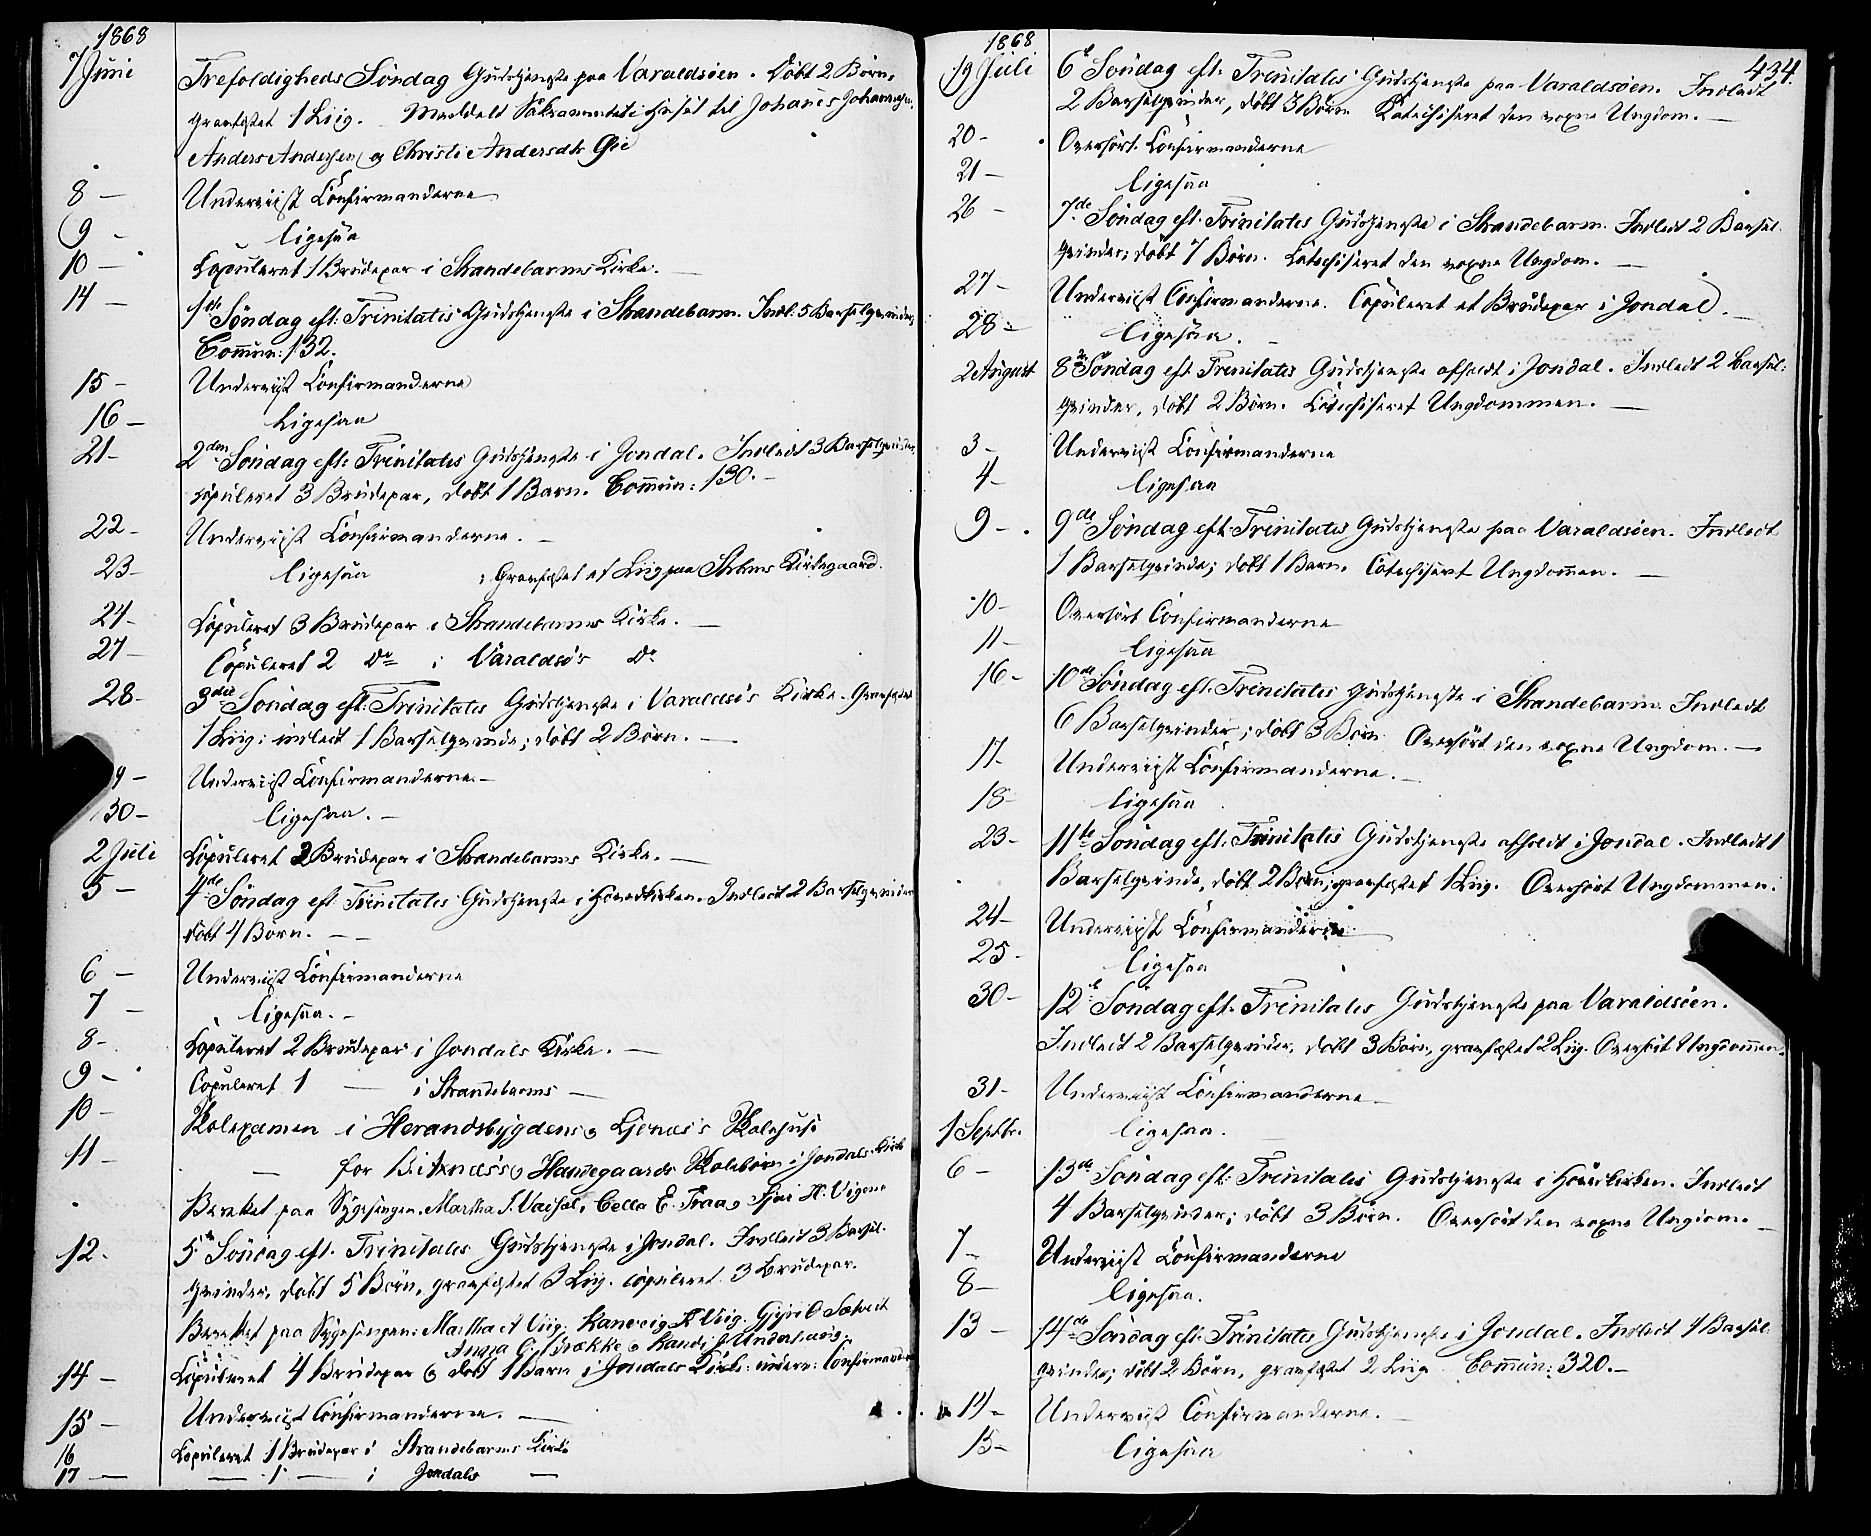 1868
7 Juni Trefoldigheds Søndag Gudstjeneste paa Varaldsøen. Døbt 2 Børn,
Graufæstet 1 Liig. Meddelt Sakramentet i Huset til Johanes Johannessen,
Anders Andersen og Christi Andersdtr Gie
8 — Underviist Confirmanderne
9 - ligesaa
10 — Copuleret 1 Brudepar i Strandebarms Kirke. —
14 — 1ste Søndag eft: Trinitatis Gudstjeneste i Strandebarm. Indl: 5 Barselqvinder,
Commun: 132.
15 - Underviist Confirmanderne
16 - Ligesaa
21 - 2den Søndag eft: Trinitatis Gudstjeneste i Jondal. Indledt 3 Barselqvinder,
copuleret 3 Brudepar, døbt 1 Barn. Commun: 130. -
22 - Underviist Confirmanderne. -
23 - ligesaa ; Graufæstet et Liig paa Strbms Kirkegaard.
24 - Copuleret 3 Brudepar i Strandebarms Kirke. —
27 - Copuleret 2 Do i Varaldsø's Do
28 - 3die Søndag eft: Trinitatis Gudstjeneste i Varaldsø's Kirke. Graufæstet
1 Liig; indledt 1 Barselqvinde; døbt 2 Børn. —
9 - Underviist Confirmanderne. -
30 - ligesaa. -
2 Juli Copuleret 2 Brudepar i Strandebarms Kirke. —
5 - 4de Søndag eft Trinitatis Gudstjeneste i Hovedkirken. Indledt 2 Barselqvinder
døbt 4 Børn. — —
6 - Underviist Confirmanderne
7 - ligesaa. -
8 - Copuleret 2 Brudepar i Jondals Kirke. —
9 - Copuleret 1 — i Strandebarms —
10 - Skolexamen i Herandsbygdens og Skolehuse
11 - — for og Skolebørn i Jondals Kirke
Bereket paa Sygesengen. Martha J. Cecilia E. Traa, H. Vigene
12. 5te Søndag eft. Trinitatis Gudstjeneste i Jondal. Indledt 3 Barsel-
qvinder, døbt 5 Børn, graufæstet 3 Liig. copuleret 3 Brudepar.
Bereket paa Sygesengen: Martha Viig. Viig. Sætveit
Anna Brække og Underhaug.
14 - Copuleret 4 Brudepar og døbt 1 Barn i Jondals Kirke: underv: Confirmander
15 - Underviist Confirmanderne. —
16 Copuleret 1 Brudepar i Strandebarms Kirke
17 — — 1 — i Jondals —
1868
434.
19 Juli 6te Søndag eft: Trinitatis Gudstjeneste paa Varaldsøen. Indledt
2 Barselqvinder, døbt 3 Børn Katechiseret den voxne Ungdom. —
20 - Overhørt Confirmanderne
21 - ligesaa
26 - 7de Søndag eft. Trinitatis Gudstjeneste i Strandebarm. Indledt 2 Barsel-
qvinder, døbt 7 Børn. Catechiseret den voxne Ungdom. —
27 - Underviist Confirmanderne. Copuleret et Brudepar i Jondal. —
28 - ligesaa. -
2 August 8de Søndag eft Trinitatis Gudstjeneste afholdt i Jondal. Indledt 2 Barsel:
qvinder, døbt 2 Børn. Catechiseret Ungdommen. —
3 - Underviist Confirmanderne
4 - ligesaa
9 - 9de Søndag eft: Trinitatis Gudstjeneste paa Varaldsøen. Indledt
1 Barselqvinde; døbt 1 Barn. Catechisert Ungdommen. —
10 - Overhørt Confirmanderne
11 - ligesaa
16 - 10de Søndag eft. Trinitatis Gudstjeneste i Strandebarm. Indledt
6 Barselqvinder; døbt 3 Børn Overhørt den voxne Ungdom. —
17 - Underviist Confirmanderne. —
18 - ligesaa
23 - 11te Søndag eft: Trinitatis Gudstjeneste afholdt i Jondal. Indledt 1
Barselqvinde, døbt 2 Børn; graufæstet 1 Liig. Overhørt Ungdommen.
24 - Underviist Confirmanderne
25 - ligesaa
30 - 12te Søndag eft. Trinitatis Gudstjeneste paa Varaldsøen.
Indledt 2 Barselqvinder, døbt 3 Børn, graufæstet 2 Liig. Overhørt Ungdommen.
31 - Underviist Confirmanderne
1 Septbr. ligesaa. —
6 - 13de Søndag eft: Trinitatis Gudstjeneste i Hovedkirken. Indledt
4 Barselqvinder; døbt 3 Børn. Overhørt den voxne Ungdom. —
7 - Underviist Confirmanderne
8 - ligesaa.
13 - 14de Søndag eft: Trinitatis Gudstjeneste i Jondal. Indledt 4 Barsel-
qvinder; døbt 2 Børn, graufæstet 2 Liig Commun: 320. -
14 - Underviist Confirmanderne. —
15 - ligesaa